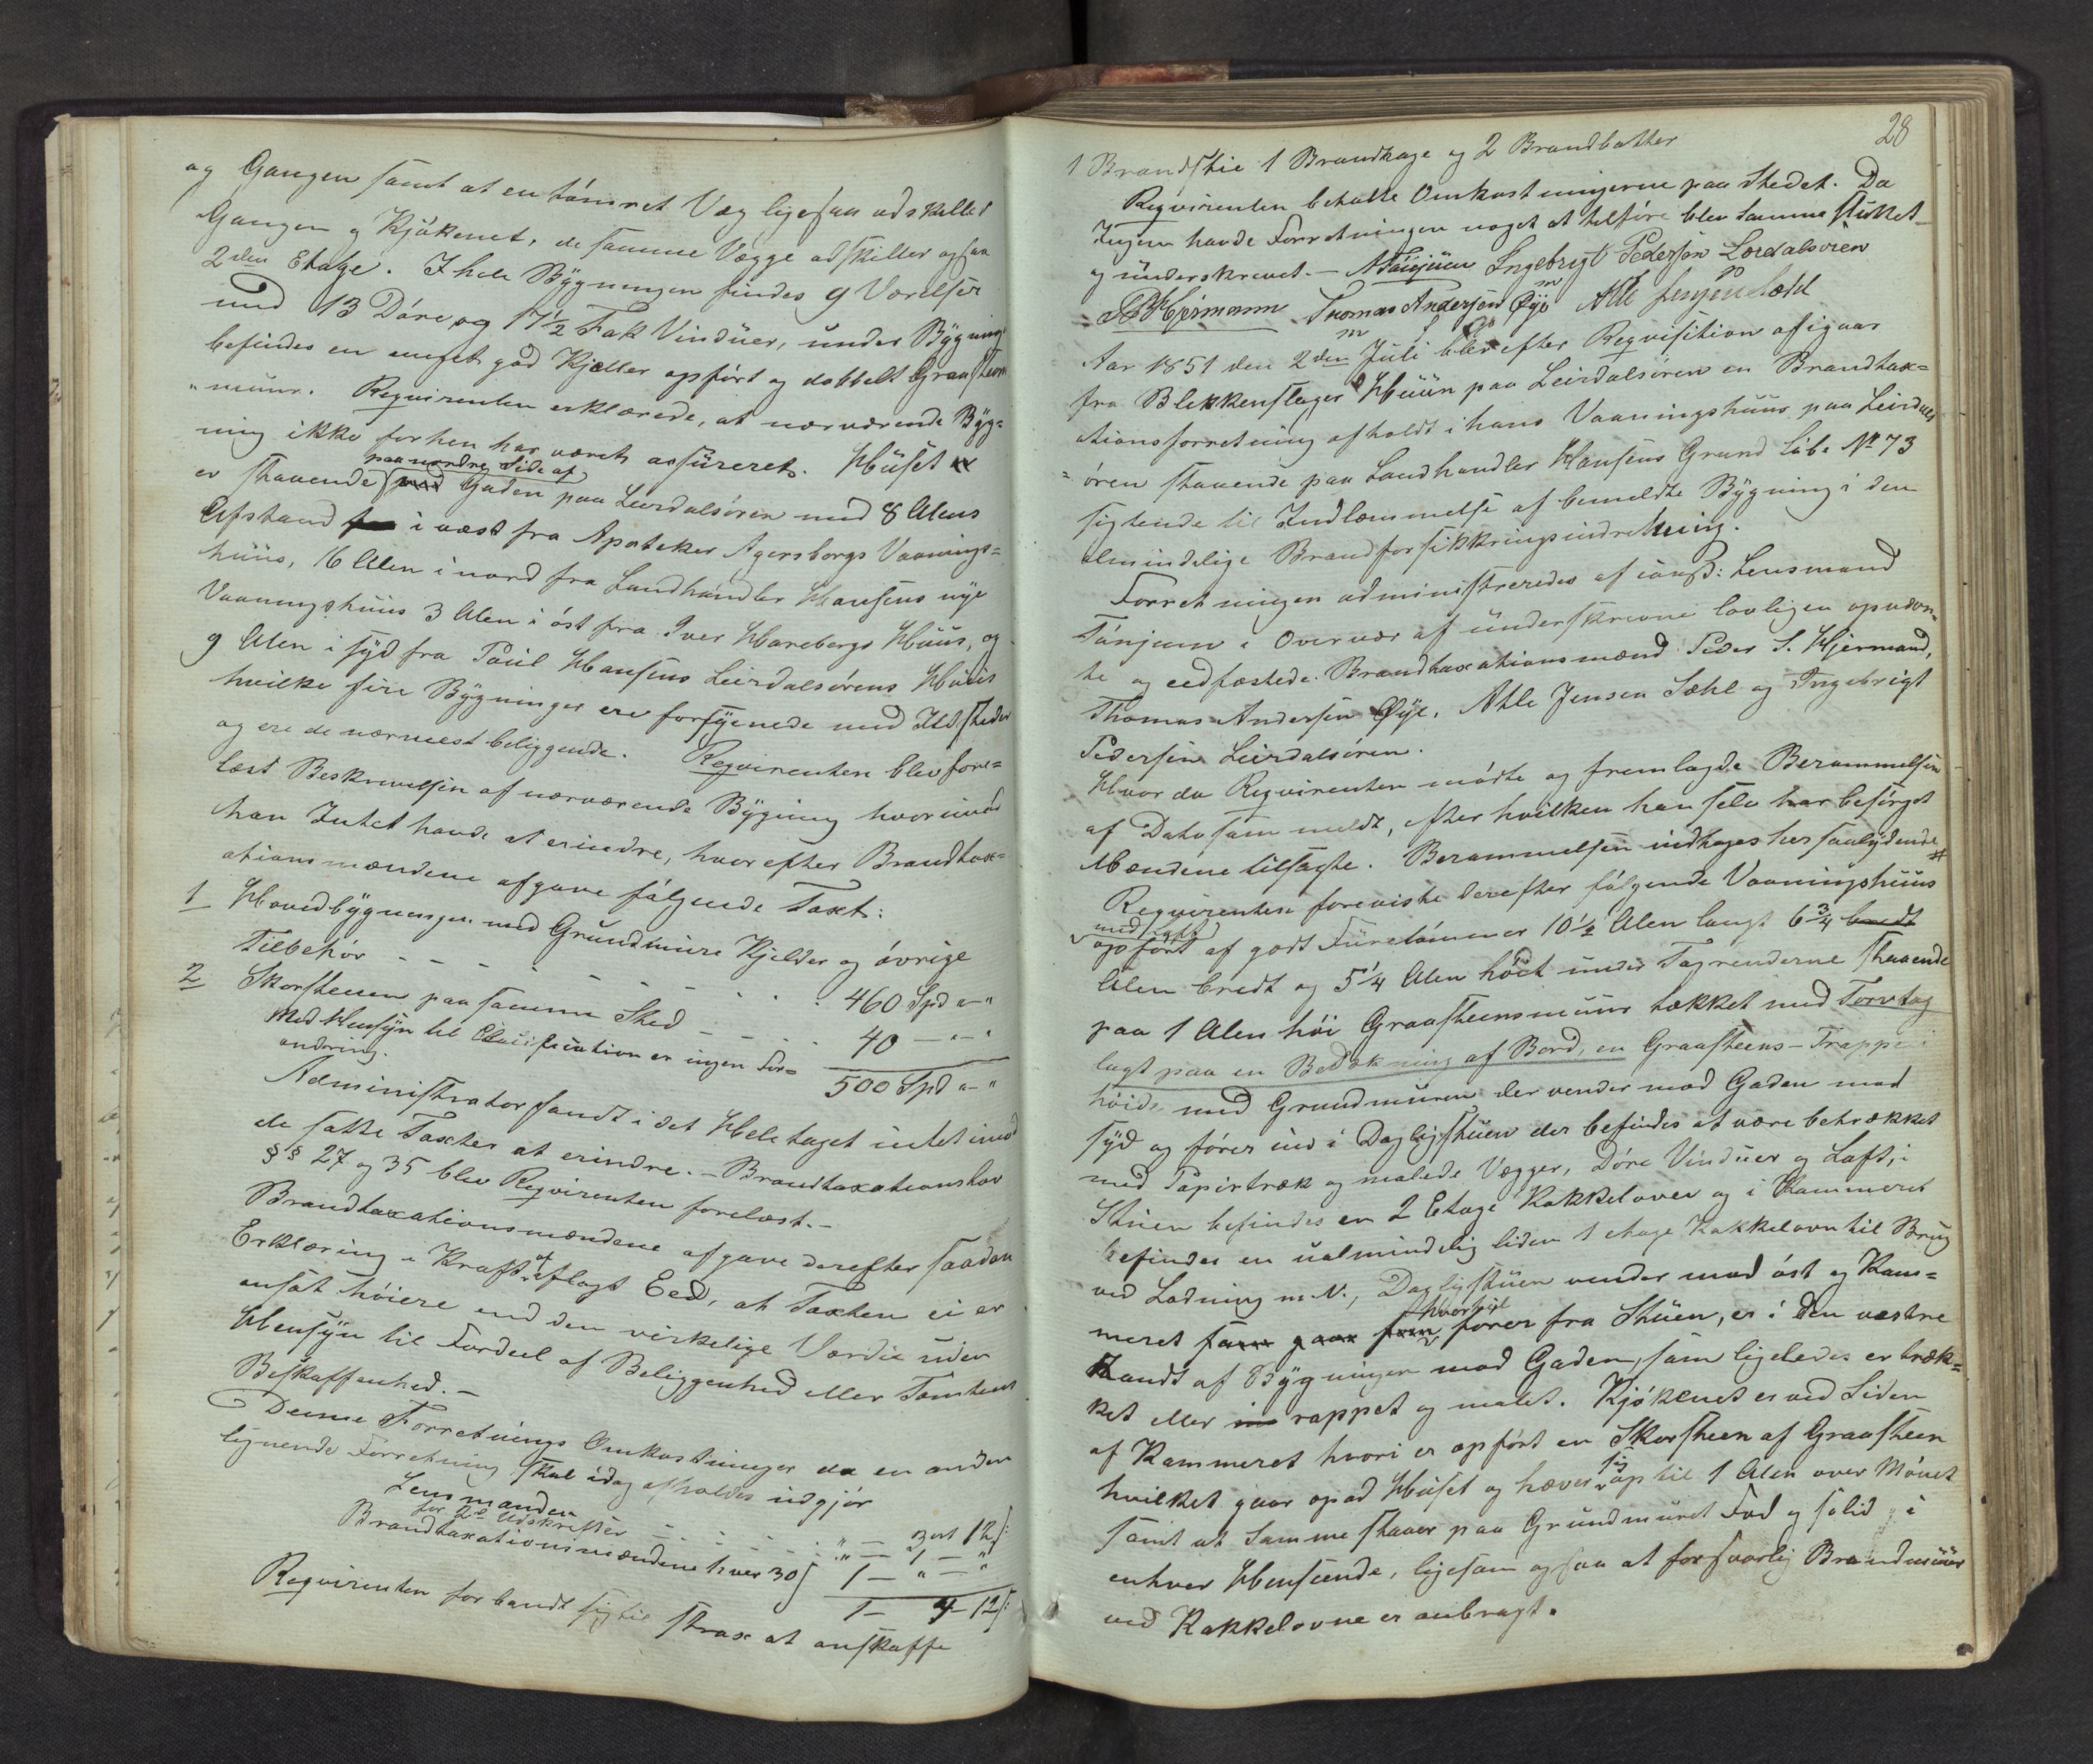 og Gangen samt at en tömret Væg ligesaa adskiller
Gangen og Kjökenet, de samme Vægge adskiller ogsaa
2den Etage. I hele Bÿgningen findes 9 Værelser
med 13 Döre og 17½ Fak Vindüer, ünder Bÿgning
befindes en meget god Kjelder opfört og dobbelt Graasteens
müür. Reqvirenten erklærede, at nærværende Bÿg=
ning ikke forhen har været assüreret. Hüset
paa nordre Side af
er staaende Gaden paa Leirdalsören med 8 Alens
Afstand i væst fra Apoteker Agersborgs Vaanings=
hüüs, 16 Alen i nord fra Landhandler Hansens nÿe
Vaaningshüüs 3 Alen i öst fra Iver Harebergs Hüüs, og
9 Alen i sÿd fra Poül Hansens Leirdalsörens Hüüs
hvilke fire Bÿgninger ere forsÿnede med Ildsteder
og ere de nærmest beliggende. Reqvirenten blev fore=
læst Beskrivelsen af nærværende Bÿgning hvorimod
han Intet havde at erindre, hvorefter Brandtax=
ationsmændene afgave fölgende Taxt:
1 Hovedbÿgningen med Gründmüre Kjelder og övrige
Tilbehör - - - - - - - - 460 Spd " - "
2 Skorstenen paa samme Sted - - - 40 - " - "
Med Hensÿn til Clasification er ingen For= 500 Spd " - "
andring.
Administrator fandt i det Hele taget intet imod
de satte Taxter at erindre. - Brandtaxationslov
§§ 27 og 35 blev Reqvirenten forelæst. -
Brandtaxationsmændene afgave derefter saadan
Erklæring i Kraft af aflagt Eed, at Taxten ei er
ansat höiere end den virkelige Værdie üden
Hensÿn til Fordeel af Beliggenhed eller Tomtens
Beskaffenhed. -
Denne Forretnings Omkostninger da en anden
lignende Forretning skal idag afholdes üdgjör
Lensmanden - - - - " - 3 ort 12 s:
for 2de Udskrifter - - - - " - 1 - "
Brandtaxationsmændene hver 30 s 1 - " - "
1 - 4 - 12 s:
Reqvirenten forbandt sig til strax at anskaffe
28
1 Brandstie 1 Brandhage og 2 Brandbötter
Reqvirenten betalte Omkostningerne paa Stedet. Da
Ingen havde Forretningen noget at tilföre blev samme slüttet
og ünderskrevet. - A Tönjum Ingebrigt Pedersön Lærdalsören
PS Hjermann Thomas Andersön Øÿe Atle Jensen Sæhl
Aar 1851 den 2den Jüli blev efter Reqvisition af igaar
fra Blekkenslager Hüün paa Leirdalsören en Brandtax=
ationsforretning afholdt i hans Vaaningshüüs paa Leirdals
=ören staaende paa Landhandler Hansens Grund löbe No 73
sigtende til Indlemmelse af bemeldte Bÿgning i den
almindelige Brandforsikkringsindretning.
Forretningen administreredes af const: Lensmand
Tönjum i Overvær af ünderskrevne lovligen opnævn-
te og eedfæstede Brandtaxationsmænd Peder S. Hjermand,
Thomas Andersen Øÿe, Atle Jensen Sæhl og Ingebrigt
Pedersen Leirdalsören.
Hvor da Reqvirenten mödte og fremlagde Berammelsen
af Dato som meldt, efter hvilken han selv har besörget
Mændene tilsagte. Berammelsen indtages her saalÿdende #
Reqvirenten foreviste derefter fölgende Vaaningshüüs
opfört af godt Füretömmer 10½ Alen langt 6¾ bredt
Alen bredt og 5¼ Alen höit ünder Tagrenderne staaende
paa 1 Alen höi Graasteensmüür tækket med Torvtag
lagt paa en Bedækning af Bord, en Graasteens-Trappe i
höide med Grundmüren der vender mod Gaden mod
sÿd og förer ind i Dagligstüen der befindes at være betrækket
med Papirtræk og malede Vægger, Döre Vindüer og Loft, i
Stüen befindes en 2 Etage Kakkelovn og i Kammeret
befindes en ualmindelig liden 1 etage Kakkelovn til Brüg
ved Lodning m. V., Dagligstüen vender mod öst og Kam=
meret som gaar frem hvortil förer fra Stüen, er i den vestre
Kandt af Bÿgningen mod Gaden, som ligeledes er træk=
ket eller rappet og malet. Kjökenet er ved Siden
af Kammeret hvori er opfört en Skorsteen af Graasteen
hvilket gaar opad Hüset og hæver sig op til 1 Alen over Mönet
samt at Samme staaer paa Gründmüret Fod og solid i
enhver Henseende, ligesom ogsaa at forsvarlig Brandmüür
ved Kakkelovne er anbragt.